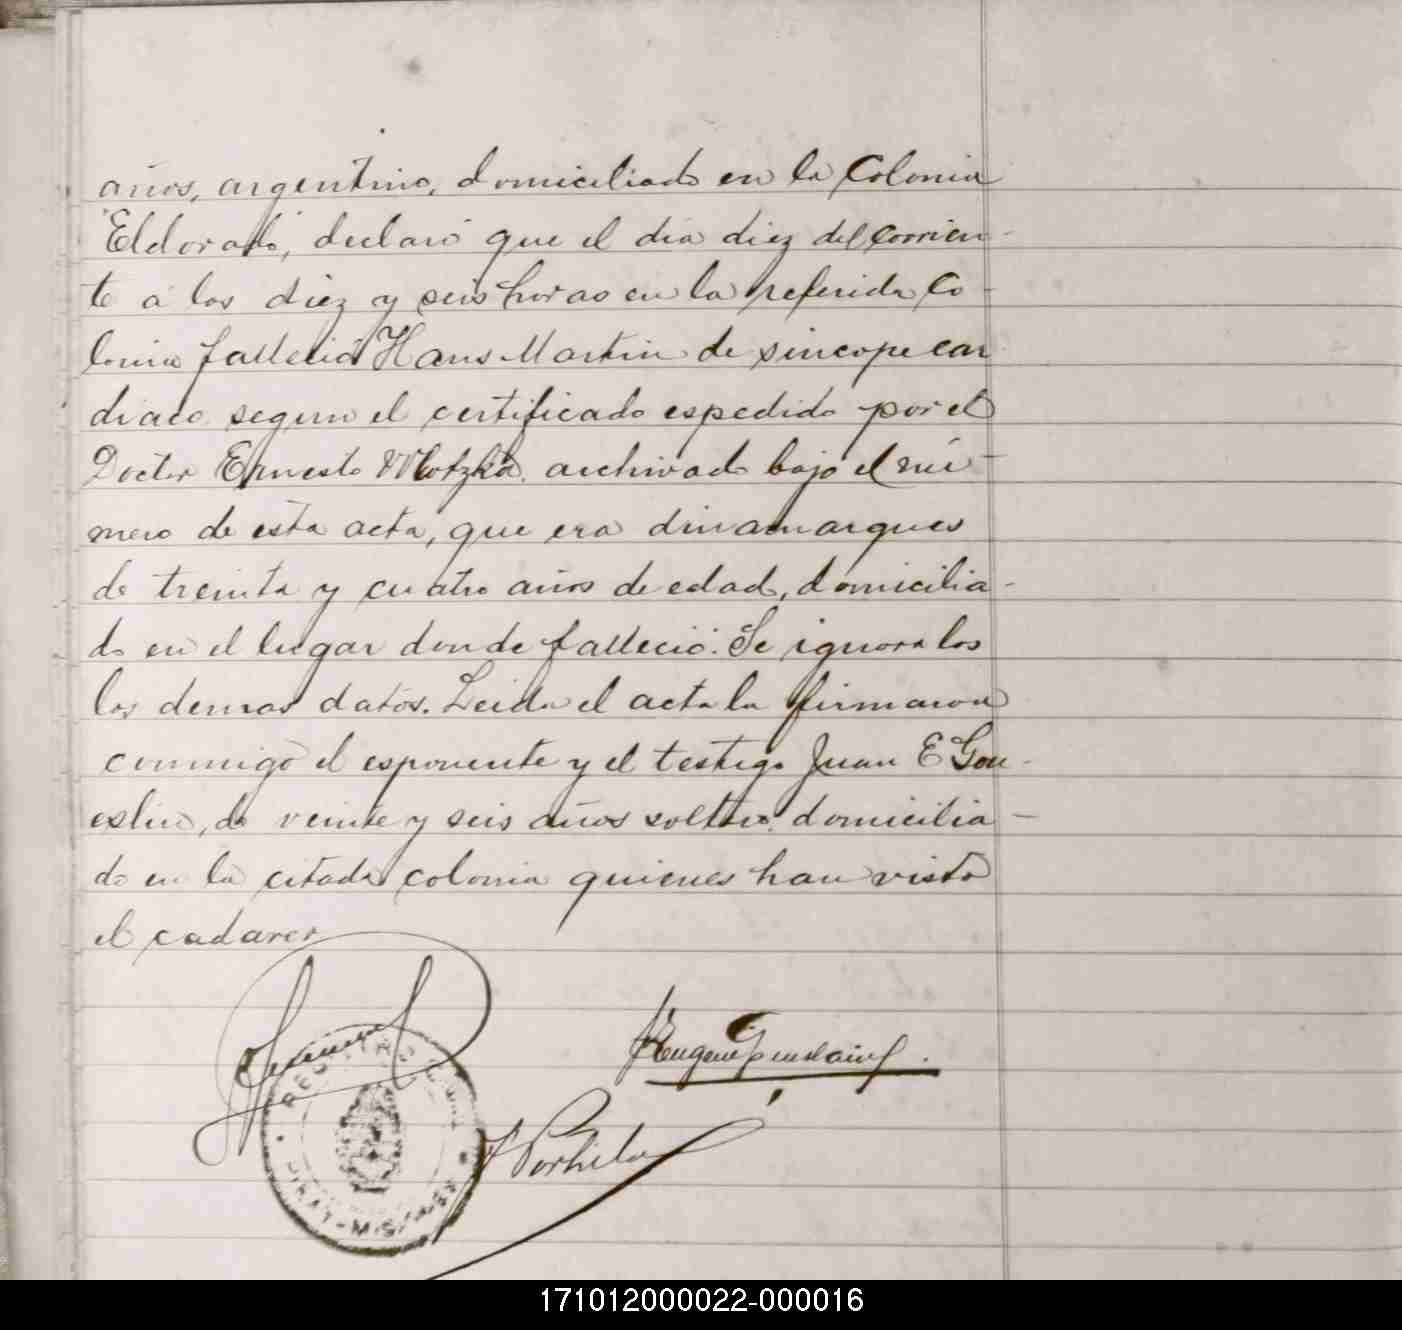 años, argentino, domiciliado en la Colonia
"Eldorado", declaró que el dia diez del corrien-
te á las diez y seis horas en la referida Co-
lonia falleció Hans Martin de sincope car
diaco segun el certificado espedido por el
Doctor Ernesto Wlotzka. archivado bajo el nú-
mero de esta acta, que era dinamarques
de treinta y cuatro años de edad, domicilia-
do en el lugar donde falleció. Se ignora los
los demas datos. Leida el acta la firmaron
conmigo el esponente y el testigo Juan E
de veinte y seis años soltero. domicilia-
do en la citada colonia quienes han visto
el cadaver
REGISTRO CIVIL
MISIONES
171012000022-000016